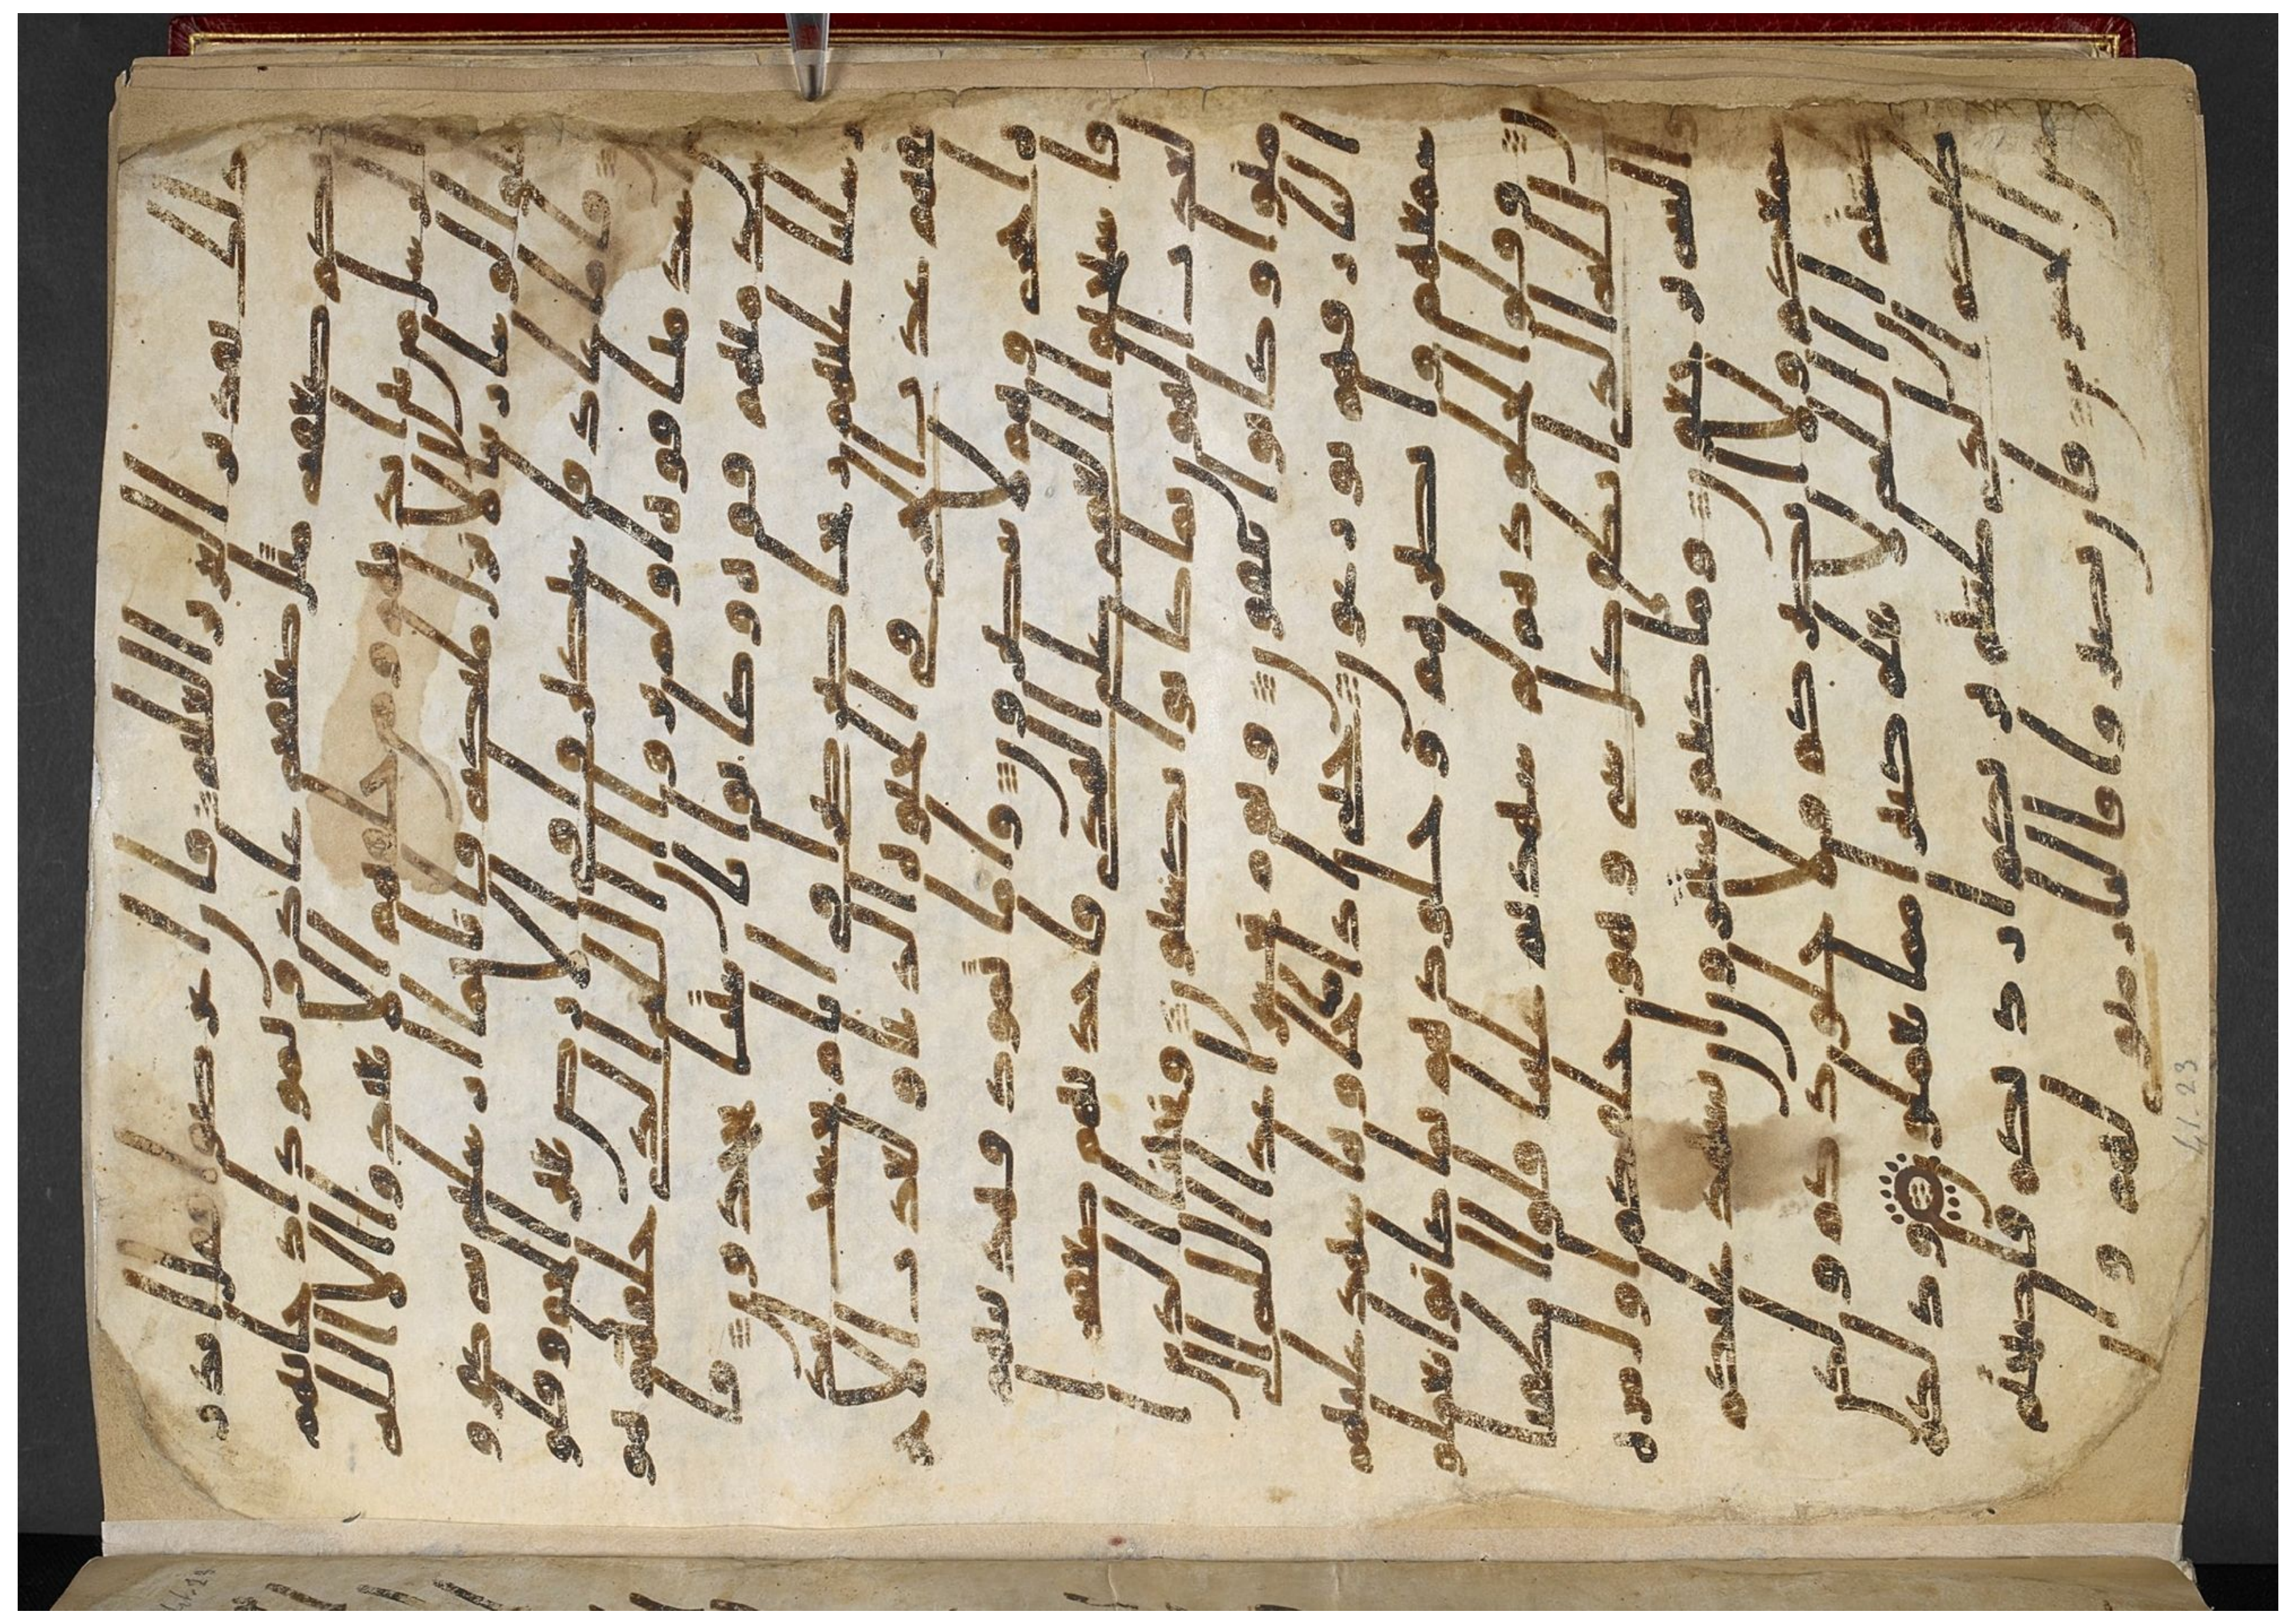 ذلك تقدير العزيز العليم فان اعرضوا فقل انذر
تكم صعقه مثل صعقه عاد وثمود اذ جاتهم
الرسل من بين ايديهم ومن خلفهم الا تعبدوا الا الله
قالوا لو شا ربنا لانزل ملكه فانا بما ارسلتم به كفرو
ن فاما عاد فاستكبروا في الارض بغير الحق وقالو
ا من اشد منا قوه اولم يروا ان الله الذي خلقهم هو
اشد منهم قوه وكانوا بايتنا يجحدون فا
رسلنا عليهم ريحا صرصرا في ايام نحسات
لنذيقهم عذاب الخزي في الحيوه الدنيا ولعذاب الاخر
ه اخزى وهم لا ينصرون واما ثمود فهدينهم
فاستحبوا العمى على الهدى فاخذتهم صعقه ا
لعذاب الهون بما كانوا يكسبون ونجينا ا
لذين امنوا وكانوا يتقون ويوم يحشر اعدا الله
الى النار فهم يوزعون حتى اذا ما جاوها شهد عليهم
سمعهم وابصرهم وجلودهم بما كانوا يعملو
ن وقالوا لجلودهم لم شهدتم علينا قالوا انطقنا
الله الذي انطق كل شي وهو خلقكم اول مره
واليه ترجعون وما كنتم تستترون ان يشهد عليكم
سمعكم ولا ابصركم ولا جلودكم ولكن
ظننتم ان الله لا يعلم كثيرا مما تعملون وذلكم
ظنكم الذي ظننتم بربكم ارديكم فاصبحتم
من الخسرين فان يصبروا فالنار مثوى لهم وا
41.23